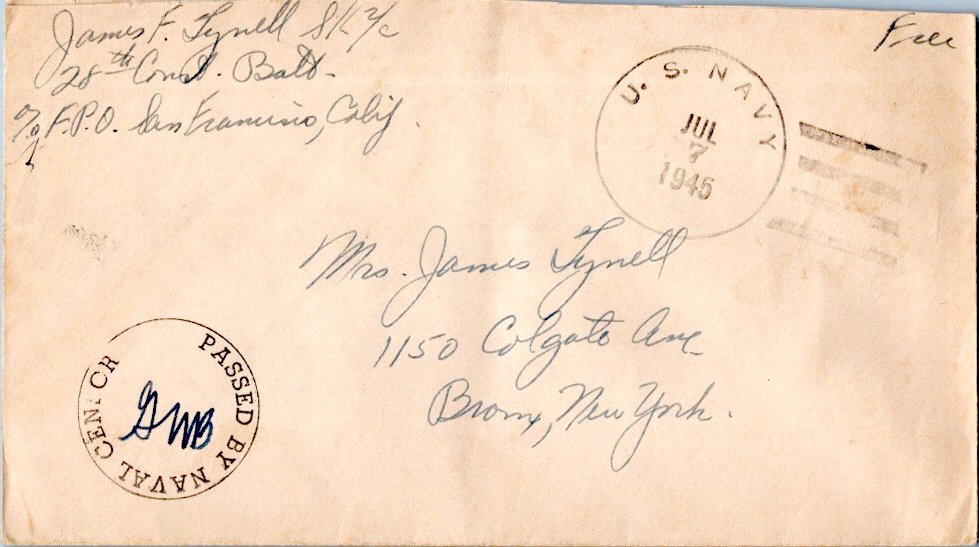 James F. Tynell SK 2/c
28th Const. Batt.
c/o F.P.O. San Francisco, Calif.
Free
U. S. NAVY
JUL
7
1945
Mrs. James Tynell
1150 Colgate Ave
Bronx, New York.
PASSED BY NAVAL CENCOR
GWB